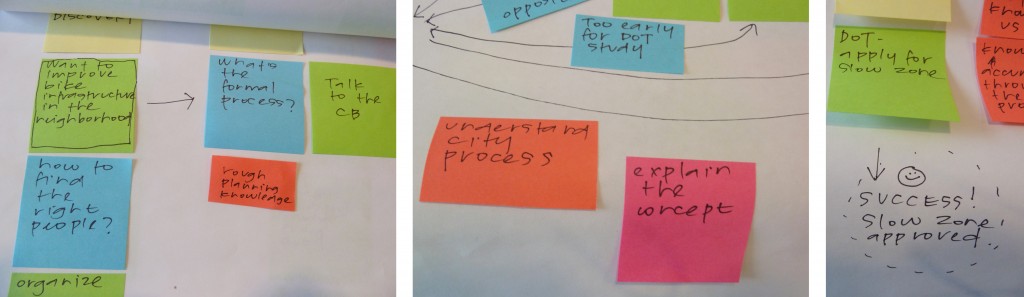 DISCOVERY
Want to
improve
bike
infrastructure
in the
neighborhood
what's
the
formal
process?
Talk
to the
CB
how to
find
the
right
people?
rough
planning
knowledge
organize
opposit
Too early
for DOT
study
understand
city
process
explain
the
concept
DOT-
apply for
slow zone
us
know
throu
the
pro
SUCCESS!
slow zone
approved